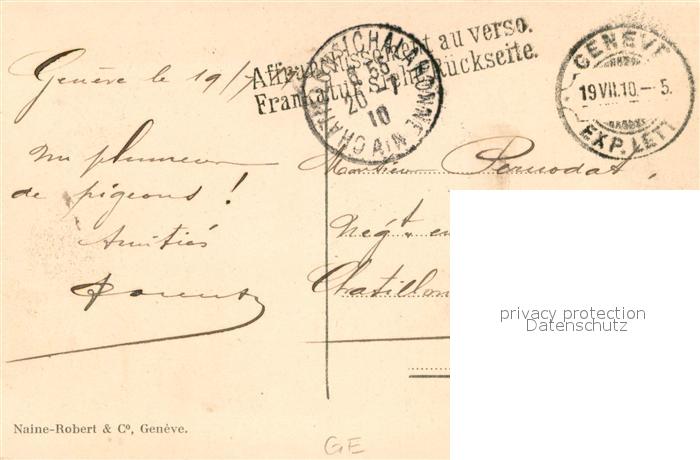 Genève le 19/7
Affranchissement au verso.
Frankatur siehe Rückseite.
CHATILLON-S-CHALARONNE
6 55
20 - 7
10
AIN
GENÈVE
19 VII.10. - 5.
EXP. LETT
Un plumeur
de pigeons !
Amitiés
Monsieur
Négt. en
Chatillon
privacy protection
Datenschutz
Naine-Robert & Cº, Genève.
GE